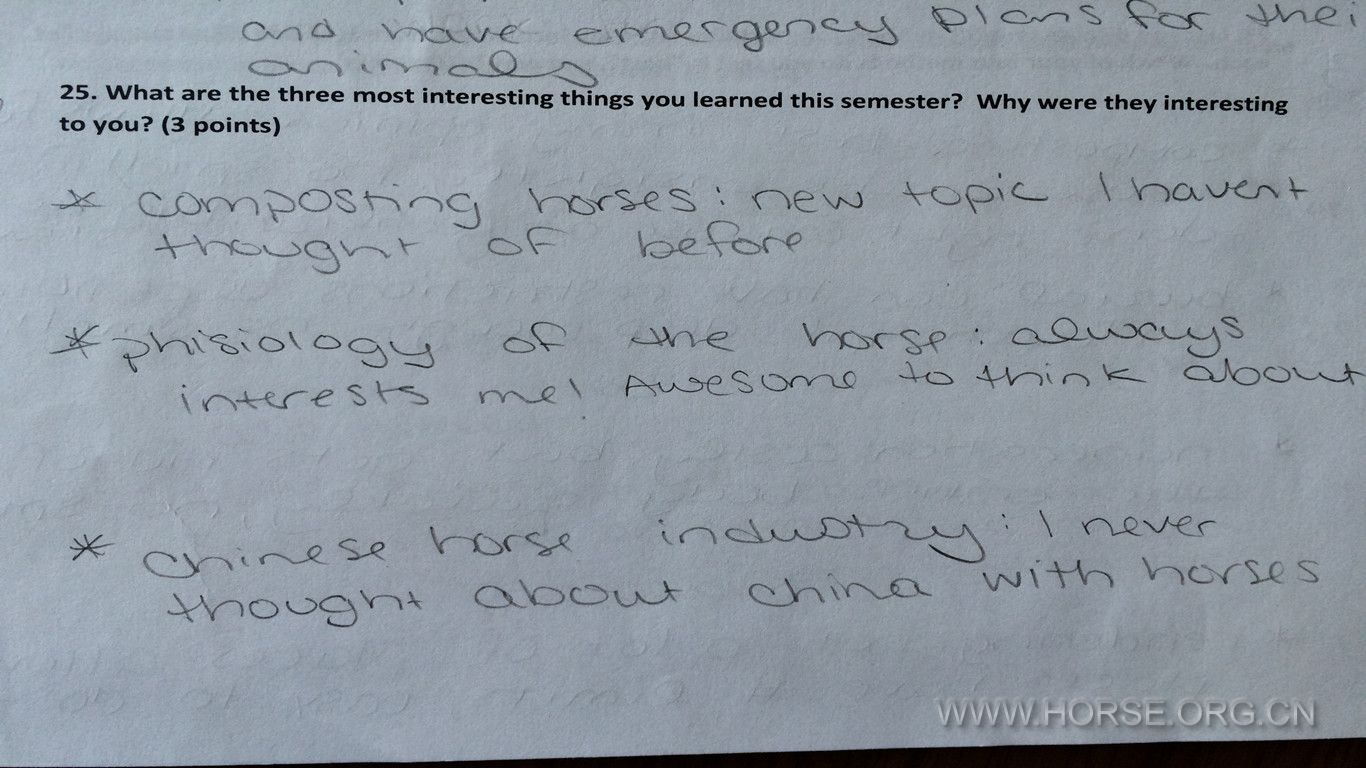 and have emergency plans for thei
animals
25. What are the three most interesting things you learned this semester? Why were they interesting
to you? (3 points)
* composting horses: new topic I havent
thought of before
* phisiology of the horse: always
interests me! Awesome to think about
* chinese horse industry: I never
thought about china with horses
WWW.HORSE.ORG.CN